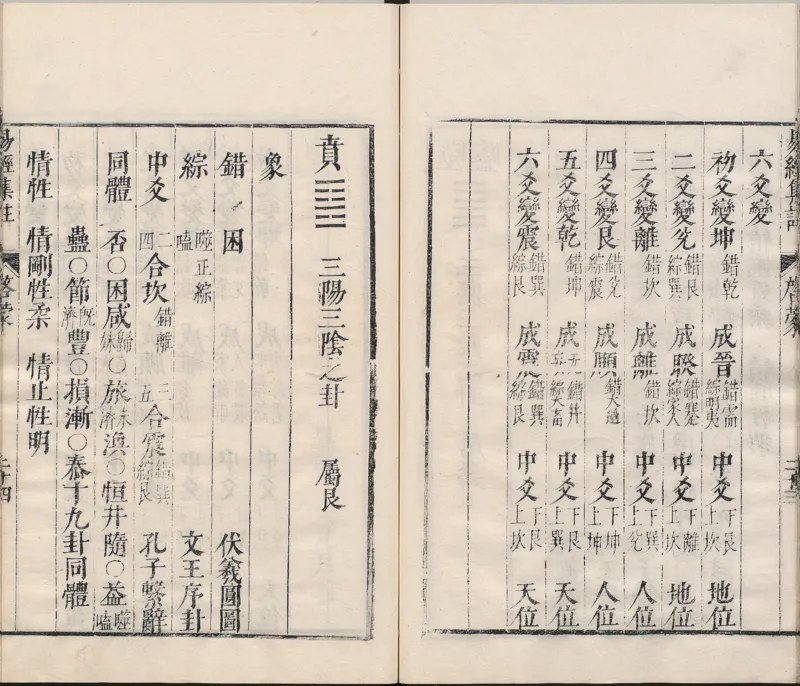 易經集註 啓蒙 二十三
六爻變
初爻變坤 錯乾 成晉 錯需綜明夷 中爻 下艮上坎 地位
二爻變兌 錯艮綜巽 成睽 錯蹇綜家人 中爻 下離上坎 地位
三爻變離 錯坎 成離 錯坎 中爻 下巽上兌 人位
四爻變艮 錯兌綜震 成頤 錯大過 中爻 下坤上坤 人位
五爻變乾 錯坤 成无妄 錯升綜大畜 中爻 下艮上巽 天位
六爻變震 錯巽綜艮 成震 錯巽綜艮 中爻 下艮上坎 天位
賁 三陽三陰之卦 屬艮
象
錯 困 伏羲圓圖
綜 噬嗑正綜 文王序卦
中爻 二四合坎 錯離 三五合震 錯巽綜艮 孔子繫辭
同體 否○困咸歸妹○旅未濟渙○恒井隨○益噬嗑
蠱○節既濟豐○損漸○泰十九卦同體
情性 情剛性柔 情止性明
易經集註 啓蒙 二十四